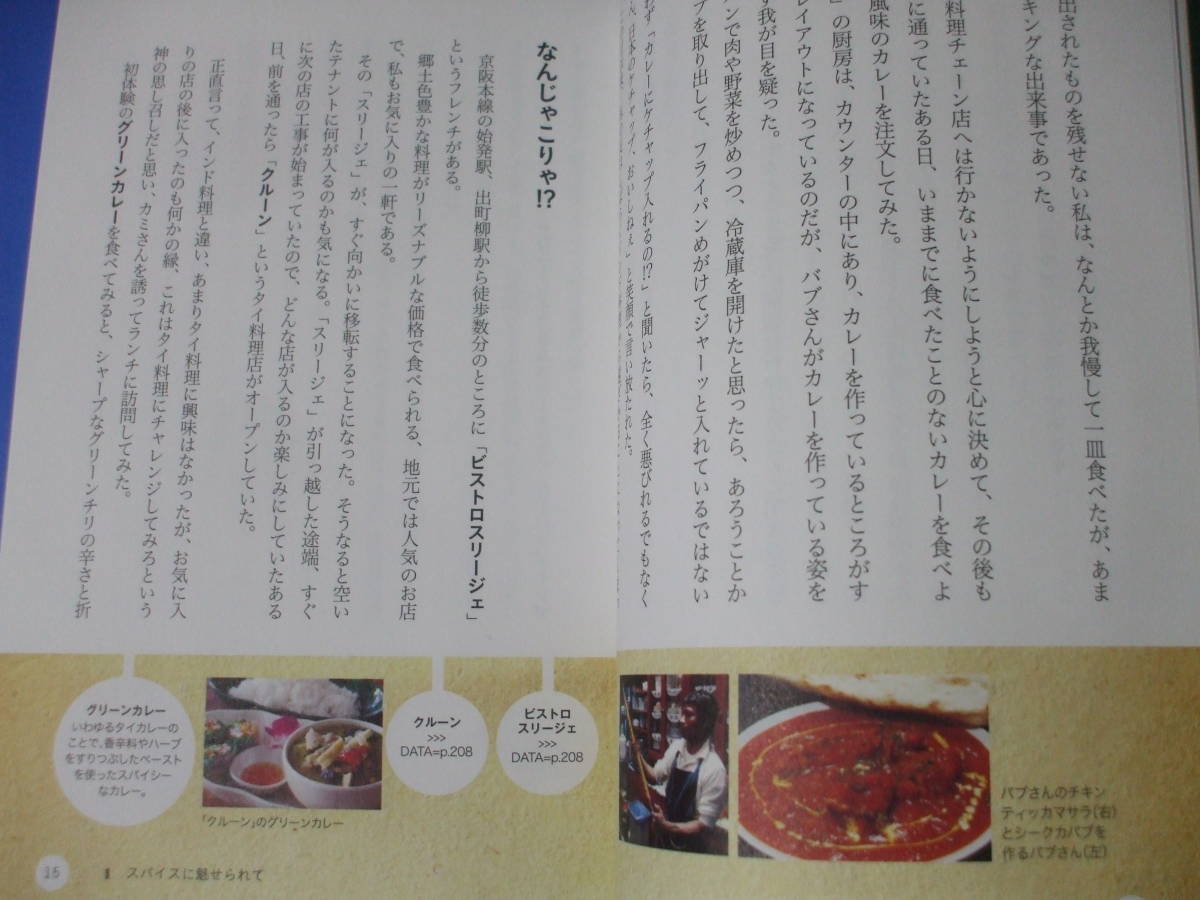 出されたものを残せない私は、なんとか我慢して一皿食べたが、あま
キングな出来事であった。
料理チェーン店へは行かないようにしようと心に決めて、その後も
に通っていたある日、いままでに食べたことのないカレーを食べよ
風味のカレーを注文してみた。
」の厨房は、カウンターの中にあり、カレーを作っているところがす
レイアウトになっているのだが、バブさんがカレーを作っている姿を
ず我が目を疑った。
ンで肉や野菜を炒めつつ、冷蔵庫を開けたと思ったら、あろうことか
プを取り出して、フライパンめがけてジャーッと入れているではない
ず「カレーにケチャップ入れるの!?」と聞いたら、全く悪びれるでもなく
日本のケチャップ、おいしねぇ」と笑顔で言い放たれた。
バブさんのチキン
ティッカマサラ(右)
とシークカバブを
作るバブさん(左)
なんじゃこりゃ!?
京阪本線の始発駅、出町柳駅から徒歩数分のところに「ビストロスリージェ」
というフレンチがある。
郷土色豊かな料理がリーズナブルな価格で食べられる、地元では人気のお店
で、私もお気に入りの一軒である。
その「スリージェ」が、すぐ向かいに移転することになった。そうなると空い
たテナントに何が入るのかも気になる。「スリージェ」が引っ越した途端、すぐ
に次の店の工事が始まっていたので、どんな店が入るのか楽しみにしていたある
日、前を通ったら「クルーン」というタイ料理店がオープンしていた。
正直言って、インド料理と違い、あまりタイ料理に興味はなかったが、お気に入
りの店の後に入ったのも何かの縁、これはタイ料理にチャレンジしてみろという
神の思し召しだと思い、カミさんを誘ってランチに訪問してみた。
初体験のグリーンカレーを食べてみると、シャープなグリーンチリの辛さと折
ビストロ
スリージェ
>>>
DATA=p.208
クルーン
>>>
DATA=p.208
「クルーン」のグリーンカレー
グリーンカレー
いわゆるタイカレーの
ことで、香辛料やハーブ
をすりつぶしたペースト
を使ったスパイシー
なカレー。
15
1 スパイスに魅せられて